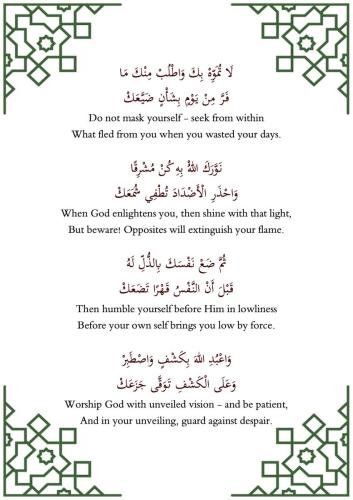 لَا تُمَوِّهْ بِكَ وَاطْلُبْ مِنْكَ مَا
فَرَّ مِنْ يَوْمٍ بِشَأْنٍ ضَيَّعَكْ
Do not mask yourself – seek from within
What fled from you when you wasted your days.
نَوَّرَكَ اللهُ بِهِ كُنْ مُشْرِقًا
وَاحْذَرِ الْأَضْدَادَ تُطْفِي شُمَعَكْ
When God enlightens you, then shine with that light,
But beware! Opposites will extinguish your flame.
ثُمَّ ضَعْ نَفْسَكَ بِالذُّلِّ لَهُ
قَبْلَ أَنْ النَّفْسُ قَهْرًا تَضَعَكْ
Then humble yourself before Him in lowliness
Before your own self brings you low by force.
وَاعْبُدِ اللهَ بِكَشْفٍ وَاصْطَبِرْ
وَعَلَى الْكَشْفِ تَوَقَّى جَزَعَكْ
Worship God with unveiled vision – and be patient,
And in your unveiling, guard against despair.